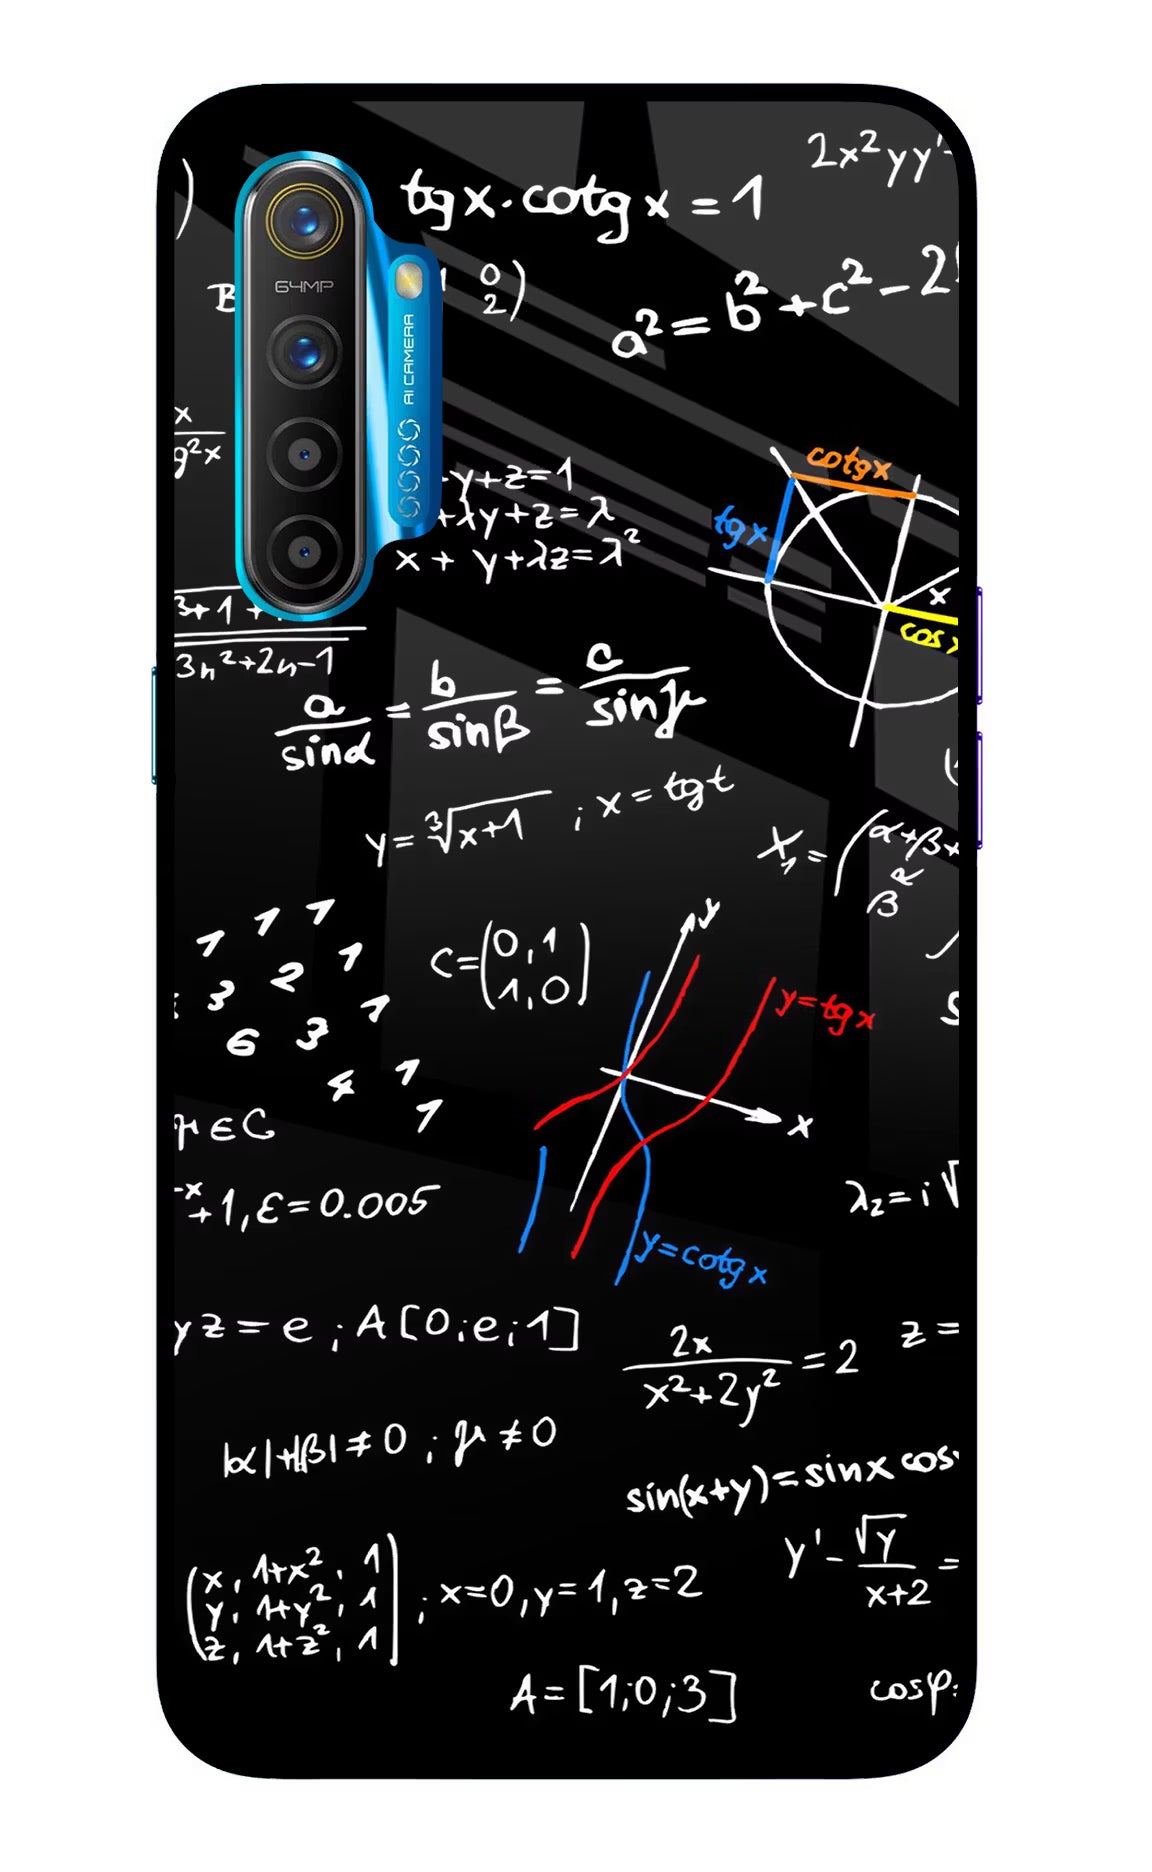 2x²yy'-
tgx·cotgx=1
64MP
AI CAMERA
B
0
2)
a²=b²+c²-2
x
g²x
-y+z=1
+λy+z=λ
x+y+λz=λ²
cotgx
tgx
x
cos
3+1+
3n²+2n-1
a/sinα = b/sinβ = c/sinγ
y=∛x+1 ; x=tgt
X₁=(α+β+
β²
1 1 1
3 2 1
6 3 1
4 1
1
C=(0,1
1,0)
y
y=tgx
x
y=cotgx
μ∈C
-x+1, ε=0.005
λ₂=i√
yz=e ; A[0;e;1]
2x/x²+2y²=2
z=
|α|+|β|≠0 ; μ≠0
sin(x+y)=sinx cos
y'-√y/x+2=
(x, 1+x², 1
y, 1+y², 1
z, 1+z², 1) ; x=0,y=1,z=2
A=[1;0;3]
cosφ=